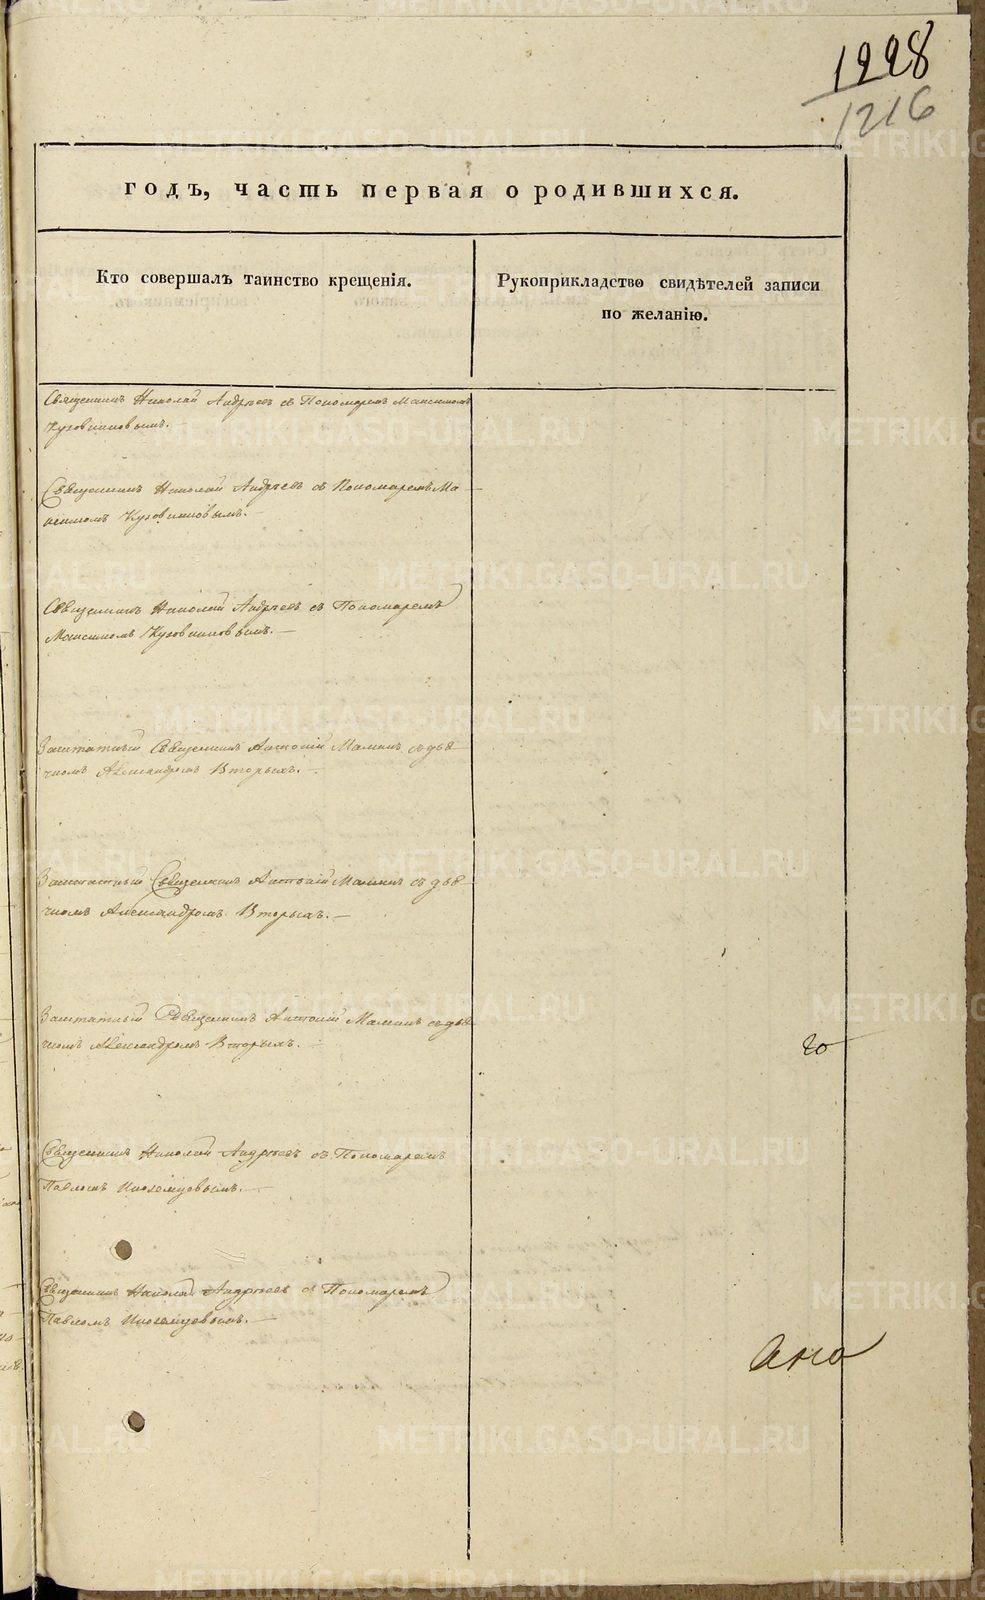 1228
1216
годъ, часть первая о родившихся.
Кто совершалъ таинство крещенія.
Рукоприкладство свидѣтелей записи
по желанію.
Священникъ Николай Андреевъ съ Пономаремъ Максимомъ
Кузовниковымъ.
Священникъ Николай Андреевъ съ Пономаремъ Ма-
ксимомъ Кузовниковымъ. —
Священникъ Николай Андреевъ съ Пономаремъ
Максимомъ Кузовниковымъ. —
Заштатный Священникъ Антоній Маминъ съ дья-
чкомъ Александромъ Вторыхъ. —
Заштатный Священникъ Антоній Маминъ съ дья-
чкомъ Александромъ Вторыхъ. —
Заштатный Священникъ Антоній Маминъ съ дья-
чкомъ Александромъ Вторыхъ. —
го
Священникъ Николай Андреевъ съ Пономаремъ
Павломъ Иноземцовымъ. —
Священникъ Николай Андреевъ съ Пономаремъ
Павломъ Иноземцовымъ. —
METRIKI.GASO-URAL.RU